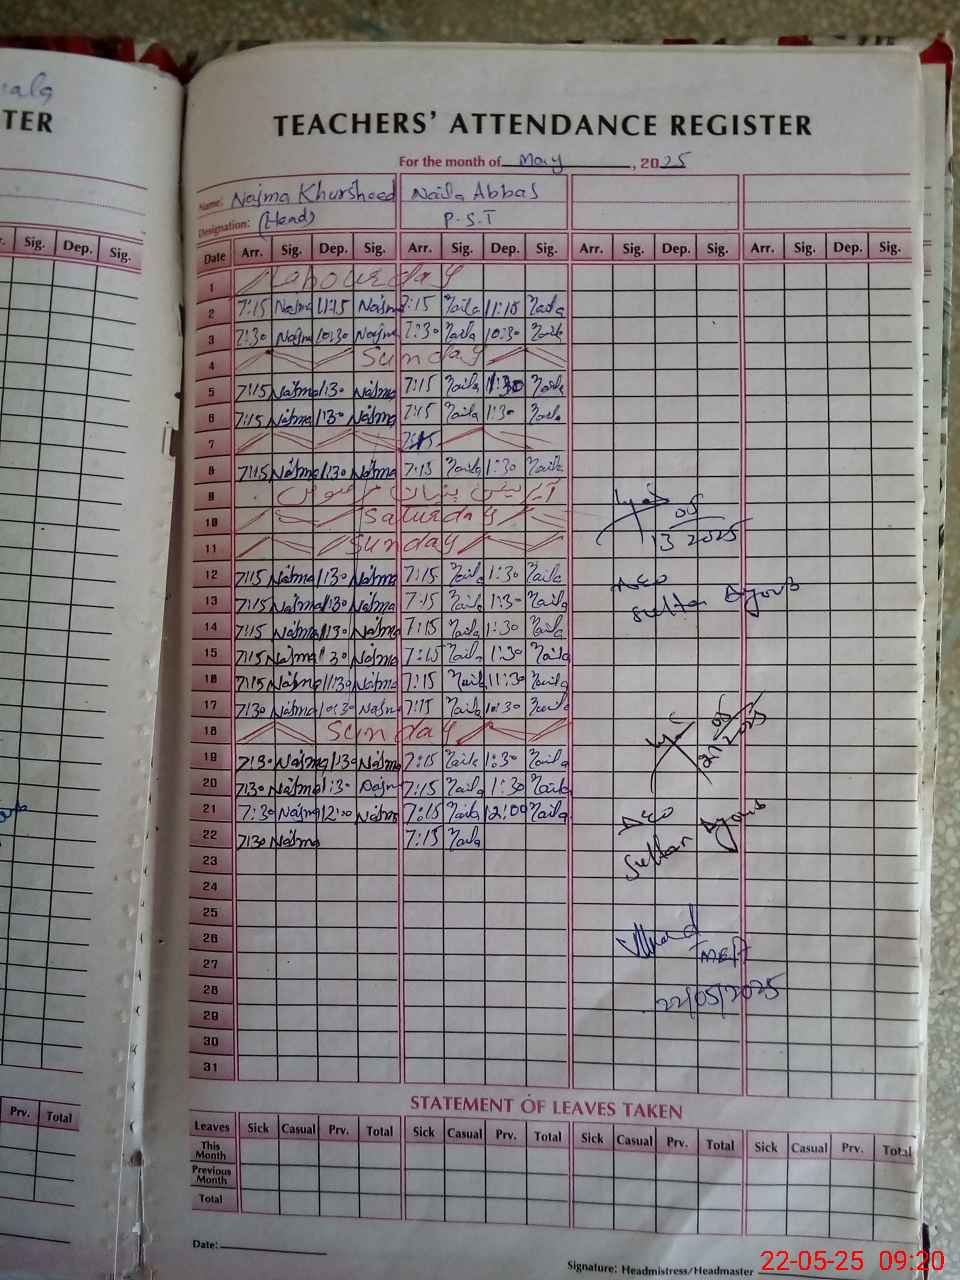 TER
TEACHERS' ATTENDANCE REGISTER
For the month of May, 2025
Name: Najma Khursheed Naila Abbas
Designation: (Head) P.S.T
Sig. Dep. Sig.
Date Arr. Sig. Dep. Sig. Arr. Sig. Dep. Sig. Arr. Sig. Dep. Sig. Arr. Sig. Dep. Sig.
1 Labour day
2 7:15 Najma 11:15 Najma 7:15 Naila 11:15 Naila
3 7:30 Najma 10:30 Najma 7:30 Naila 10:30 Naila
4 Sunday
5 7:15 Najma 1:30 Najma 7:15 Naila 1:30 Naila
6 7:15 Najma 1:30 Najma 7:15 Naila 1:30 Naila
7 7:15
8 7:15 Najma 1:30 Najma 7:15 Naila 1:30 Naila
9
10 Saturday
05
11 Sunday
13 2025
12 7:15 Najma 1:30 Najma 7:15 Naila 1:30 Naila
AEO
13 7:15 Najma 1:30 Najma 7:15 Naila 1:30 Naila
Sultan Ayoub
14 7:15 Najma 1:30 Najma 7:15 Naila 1:30 Naila
15 7:15 Najma 1:30 Najma 7:15 Naila 1:30 Naila
16 7:15 Najma 11:30 Najma 7:15 Naila 11:30 Naila
17 7:30 Najma 10:30 Najma 7:15 Naila 10:30 Naila
18 Sunday
21 05 2025
19 7:30 Najma 1:30 Najma 7:15 Naila 1:30 Naila
20 7:30 Najma 1:30 Najma 7:15 Naila 1:30 Naila
21 7:30 Najma 12:00 Najma 7:15 Naila 12:00 Naila
AEO
22 7:30 Najma 7:15 Naila
Sultan Ayoub
23
24
25
26
27
28
22/05/2025
29
30
31
STATEMENT OF LEAVES TAKEN
Prv. Total
Leaves Sick Casual Prv. Total Sick Casual Prv. Total Sick Casual Prv. Total Sick Casual Prv. Total
This Month
Previous Month
Total
Date:
Signature: Headmistress/Headmaster
22-05-25 09:20